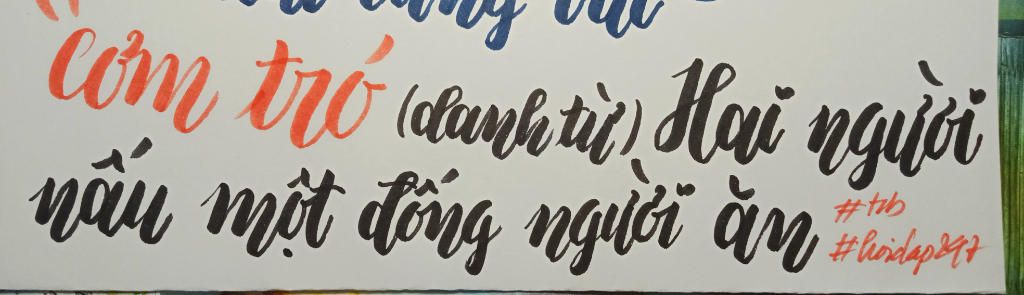 Cơm tró (danh từ) Hai người
nấu một đống người ăn
#trb
#hoidap247